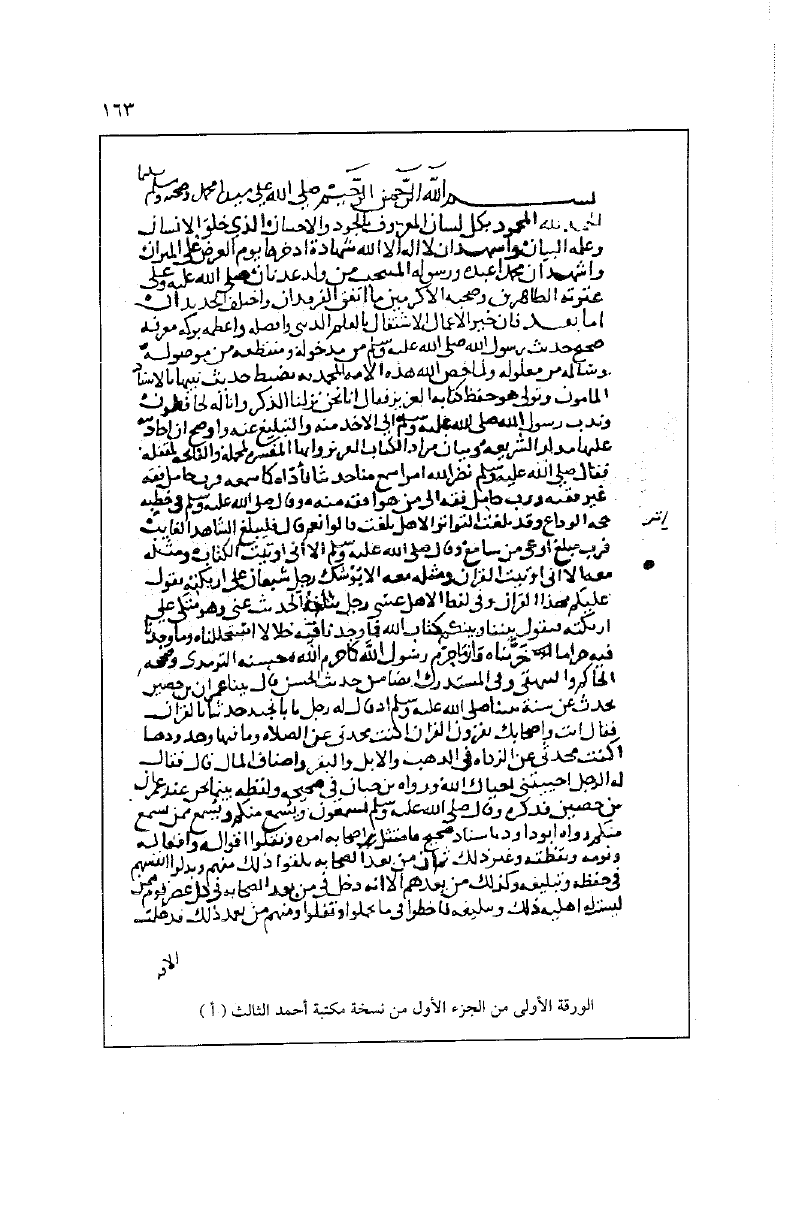 ١٦٣
بســـم الله الرَّحمن الرَّحيم صلى الله على سيدنا محمد وصحبه وسلم تسليما
الحمد لله المحمود بكل لسان المعروف بالجود والاحسان الذى خلق الانسان
وعلمه البيان واشهد ان لا اله الا الله شهادة ادخرها يوم العرض على الميزان
واشهد ان محمدا عبده ورسوله المنتخب من ولد عدنان صلى الله عليه وعلى
عترته الطاهرين وصحبه الاكرمين ما اتفق الفرقدان واختلف الجديدان
اما بعد فان خير الاعمال الاشتغال بالعلم الدينى وافضله واعظمه بركه معرفه
صحيح حديث رسول الله صلى الله عليه وسلم من مدخوله ومنقطعه من موصوله
وسالمه من معلوله ولما خص الله هذه الامه المحمديه بضبط حديث نبيها بالاسناد
المامون وتولى هو حفظ كتابه العزيز فقال انا نحن نزلنا الذكر وانا له لحافظون
وندب رسول الله صلى الله عليه وسلم الى الاخذ منه والتبليغ عنه واوضح ان احاديثه
عليها مدار الشريعه وبيان مراد الكتاب العزيز وانها المفسرة لمجمله والفاتحة لمقفله
فقال صلى الله عليه وسلم نضر الله امرا سمع منا حديثا فأدّاه كما سمعه ورب حامل فقه
غير فقيه ورب حامل فقه الى من هو افقه منه وقال صلى الله عليه وسلم فى خطبه
حجه الوداع وقد بلغت التواتر الا هل بلغت قالوا نعم قال فليبلغ الشاهد الغايب
فرب مبلغ اوعى من سامع وقال صلى الله عليه وسلم الا انى اوتيت الكتاب ومثله
معه الا انى اوتيت القران ومثله معه الا يوشك رجل شبعان على اريكته يقول
عليكم بهذا القران وفى لفظ الا هل عسى رجل يبلغه الحديث عنى وهو متكى على
اريكته فيقول بيننا وبينكم كتاب الله فما وجدنا فيه حلالا استحللناه وما وجدنا
فيه حراما حرَّمناه وان ما حرم رسول الله كما حرم الله وحسنه الترمذى وصححه
الحاكم والبيهقى وفى المستدرك ايضا من حديث الحسن قال بينا عمران بن حصين
يحدث عن سنة نبينا صلى الله عليه وسلم اذ قال له رجل يا با نجيد حدثنا بالقران
فقال انت واصحابك تقرؤن القران اكنت محدثى عن الصلاه وما فيها وحدودها
اكنت محدثى عن الزكاه فى الذهب والابل والبقر واصناف المال قال فقال
له الرجل احييتنى احياك الله ورواه بن حبان فى صحيحه ولفظه بينما نحن عند عمران
بن حصين فذكره وقال صلى الله عليه وسلم تسمعون ويسمع منكم ويسمع ممن يسمع
منكم رواه ابو داود باسناد صحيح فامتثل اصحابه امره ونقلوا اقواله وافعاله
ونومه ويقظته وغير ذلك ثم ان من بعد الصحابه تلقوا ذلك منهم وبذلوا انفسهم
فى حفظه وتبليغه وكذلك من بعدهم الا انه دخل فى من بعد الصحابه فى كل عصر قوم ممن
ليست له اهلية ذلك وتبليغه فاخطوا فى ما تحملوا ونقلوا ومنهم من تعمد ذلك فدخلت
الورقة الأولى من الجزء الأول من نسخة مكتبة أحمد الثالث ( أ )